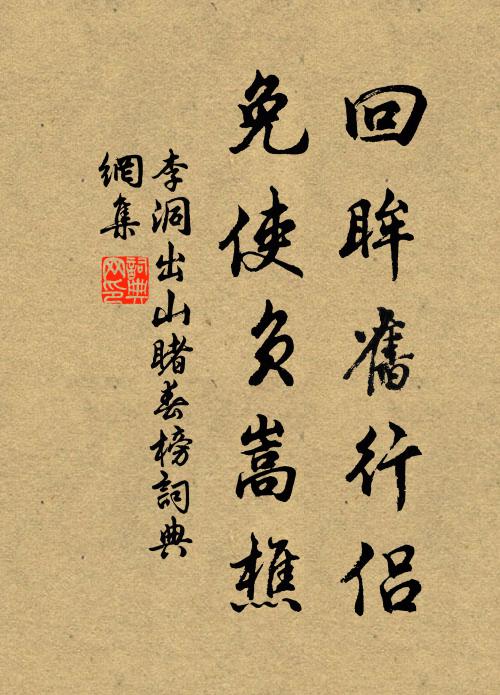 回眸舊行侶
免使負嵩樵
李洞出山睹春榜詞典
網集
詞典網印